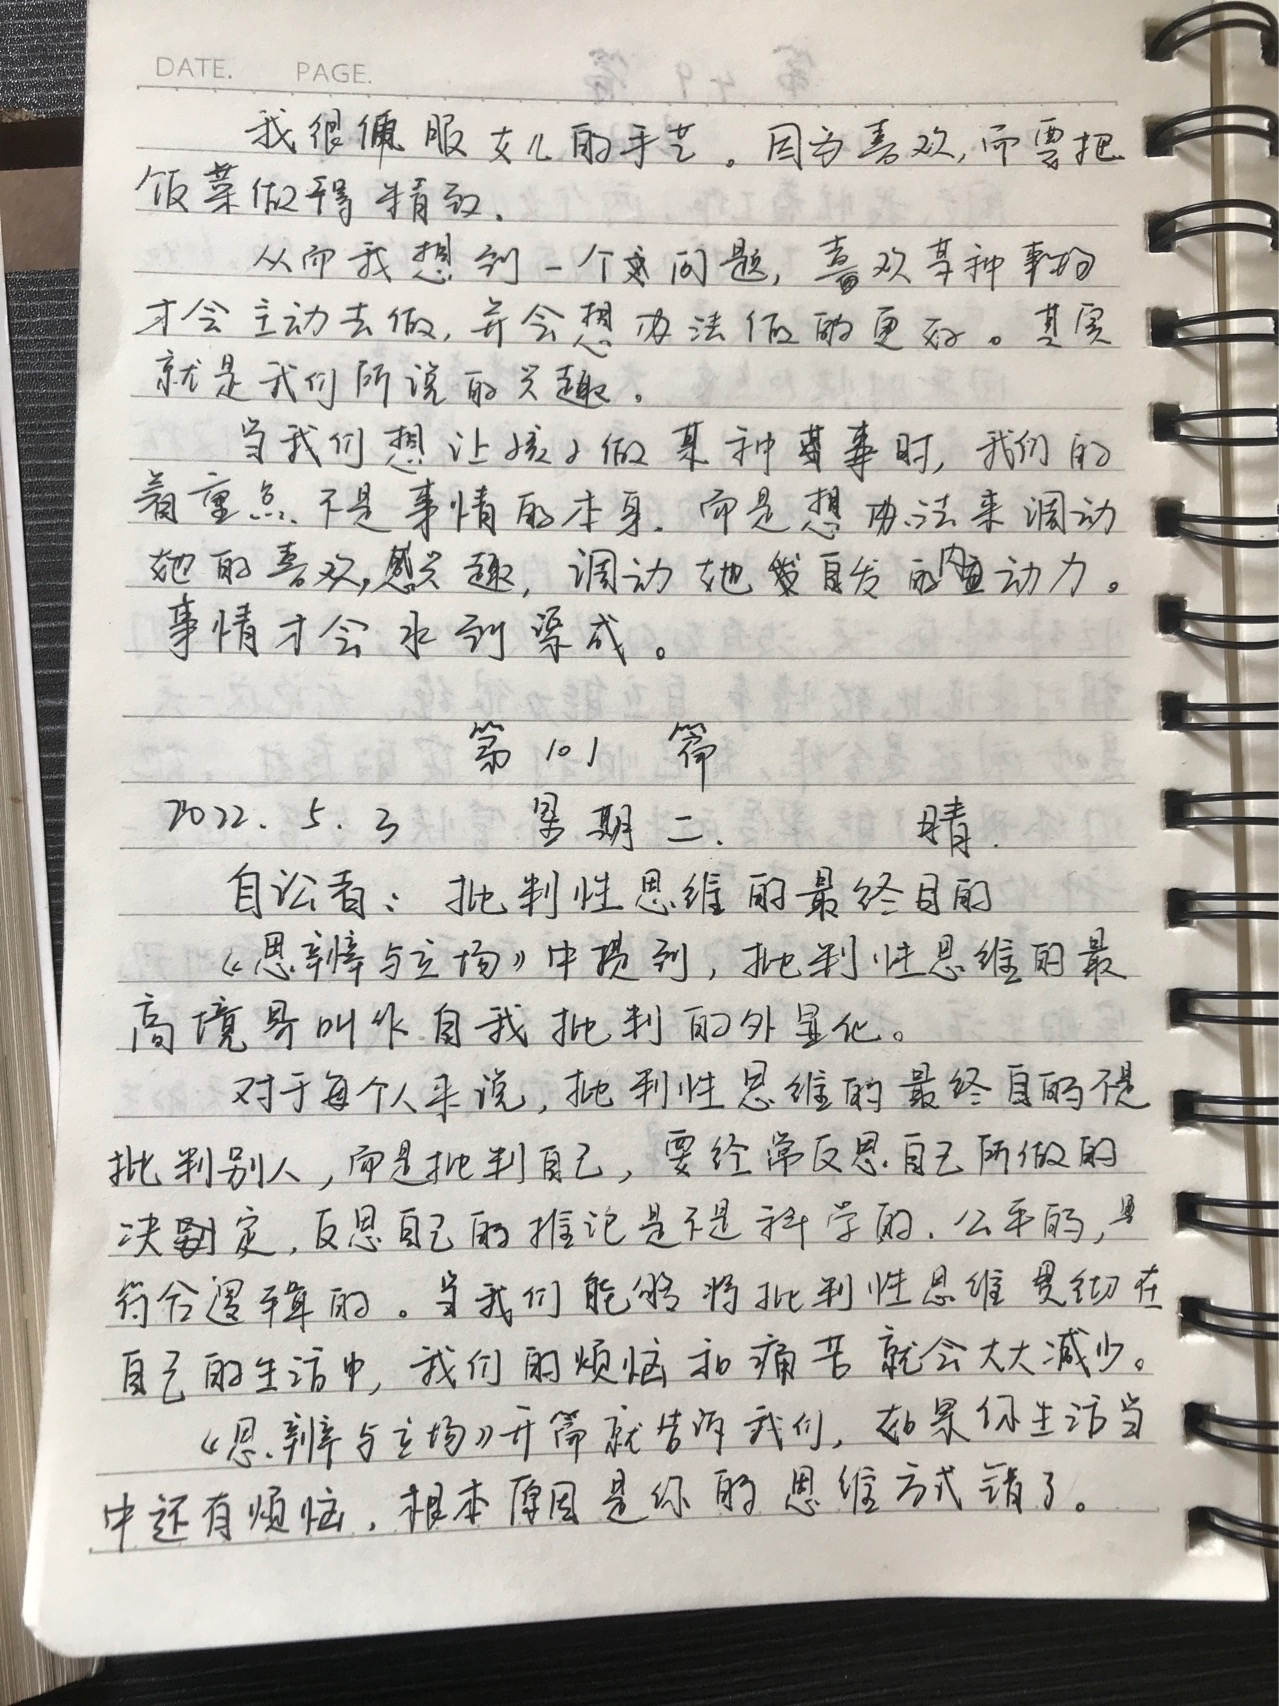 DATE. PAGE.
我很佩服女儿的手艺。因为喜欢,而要把
饭菜做得精致.
从而我想到一个问题,喜欢某种事的
才会主动去做,并会想办法做的更好。其实
就是我们所说的兴趣。
当我们想让孩子做某种事时,我们的
着重点不是事情的本身.而是想办法来调动
她的喜欢,感兴趣,调动她自发的内动力。
事情才会水到渠成。
第101篇
2022.5.3 星期二. 晴.
自讼者:批判性思维的最终目的
《思辨与立场》中提到,批判性思维的最
高境界叫作自我批判的外显化。
对于每个人来说,批判性思维的最终目的不是
批判别人,而是批判自己,要经常反思自己所做的
决定,反思自己的推论是不是科学的.公平的,是
符合逻辑的。当我们能够将批判性思维贯彻在
自己的生活中,我们的烦恼和痛苦就会大大减少。
《思辨与立场》开篇就告诉我们,如果你生活当
中还有烦恼,根本原因是你的思维方式错了。